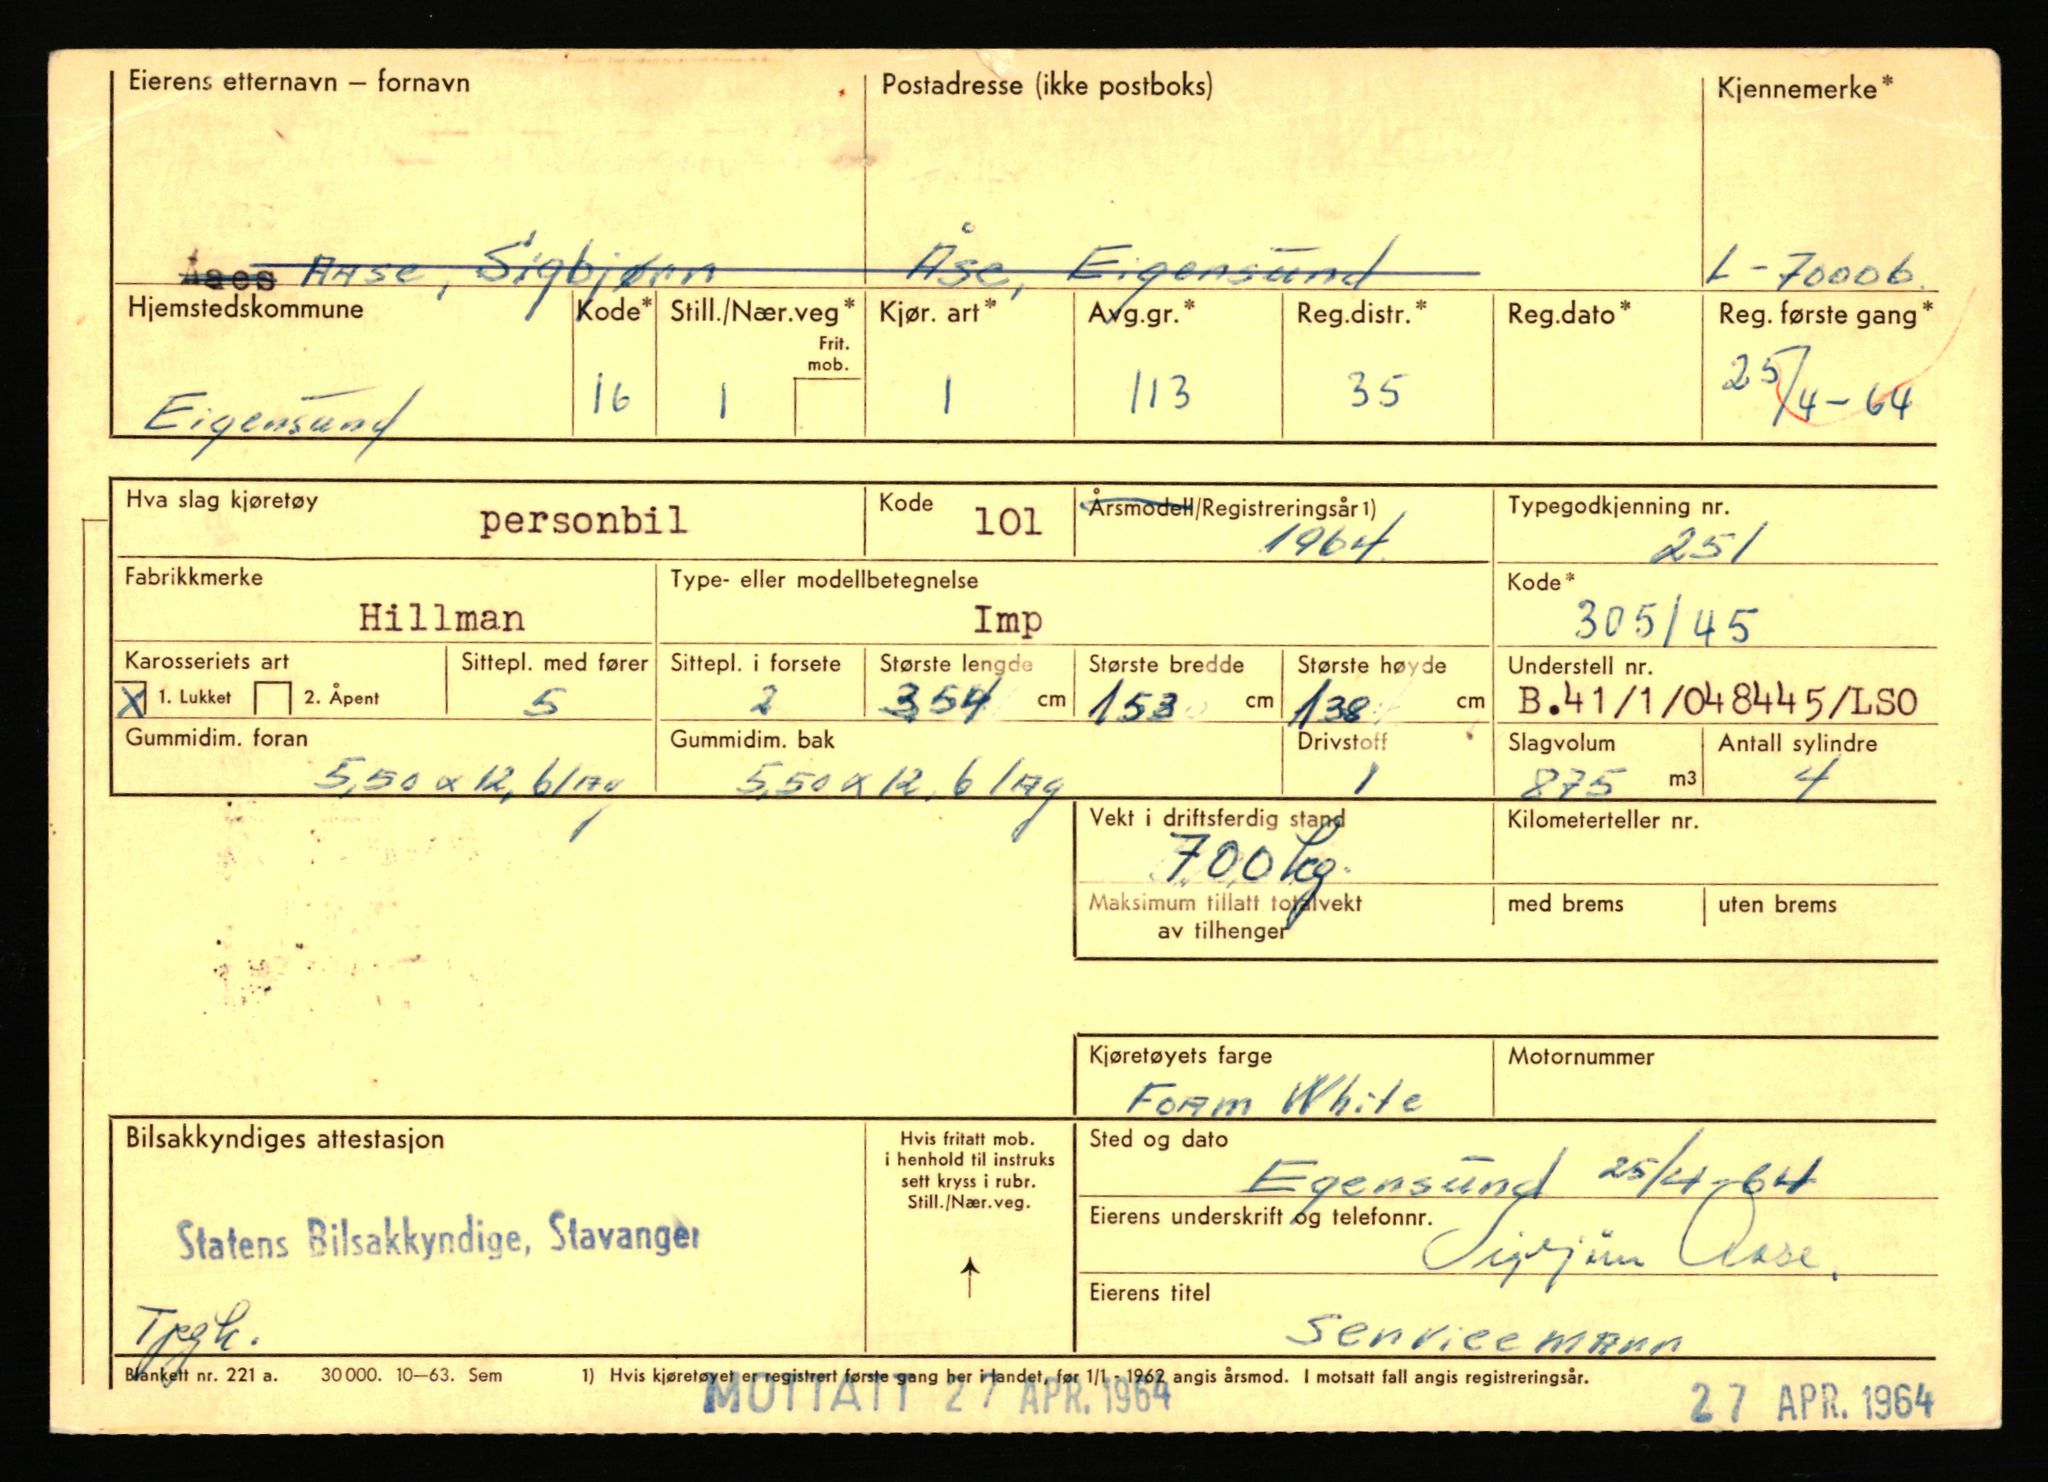 Eierens etternavn – fornavn Postadresse (ikke postboks) Kjennemerke*
Aase, Sigbjørn Åse, Eigensund L-70006.
Hjemstedskommune Kode* Still./Nær.veg* Kjør. art* Avg.gr.* Reg.distr.* Reg.dato* Reg. første gang*
Frit.
mob.
Eigensund 16 1 1 113 35 25/4-64
Hva slag kjøretøy Kode Årsmodell/Registreringsår1) Typegodkjenning nr.
personbil 101 1964 251
Fabrikkmerke Type- eller modellbetegnelse Kode*
Hillman Imp 305/45
Karosseriets art Sittepl. med fører Sittepl. i forsete Største lengde Største bredde Største høyde Understell nr.
X 1. Lukket 2. Åpent 5 2 354 cm 153 cm 138 cm B.41/1/048445/LSO
Gummidim. foran Gummidim. bak Drivstoff Slagvolum Antall sylindre
5,50 x 12, 6/lag 5,50 x 12, 6 lag 1 875 m3 4
Vekt i driftsferdig stand Kilometerteller nr.
700 kg.
Maksimum tillatt totalvekt med brems uten brems
av tilhenger
Kjøretøyets farge Motornummer
Foam White
Bilsakkyndiges attestasjon Hvis fritatt mob. Sted og dato
i henhold til instruks
sett kryss i rubr.
Still./Nær.veg.
Egensund 25/4-64
Eierens underskrift og telefonnr.
Statens Bilsakkyndige, Stavanger Sigbjørn Aase.
Eierens titel
Tpgk. Servicemann
Blankett nr. 221 a. 30000. 10–63. Sem 1) Hvis kjøretøyet er registrert første gang her i landet, før 1/1 - 1962 angis årsmod. I motsatt fall angis registreringsår.
MOTTATT 27 APR. 1964 27 APR. 1964